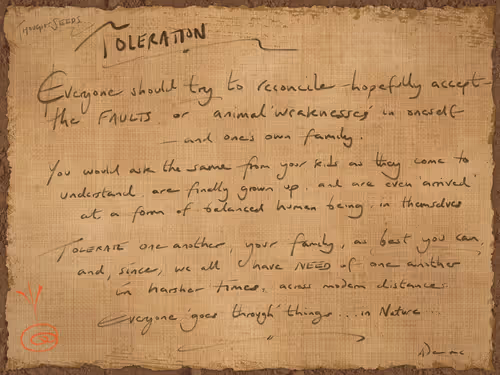 Thought SEEDS
TOLERATION
Everyone should try to reconcile - hopefully accept -
the FAULTS or animal 'weaknesses' in oneself
- and one's own family.
You would ask the same from your kids as they come to
understand. are finally grown up. and are even 'arrived'
at a form of balanced human being. in themselves
TOLERATE one another, your family, as best you can.
and, since, we all have NEED of one another
in harsher times. across modern distances.
Everyone 'goes through' things... in Nature...